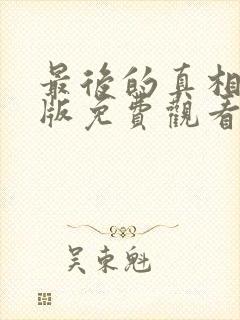 最後的真相
版免費觀看
吴東魁